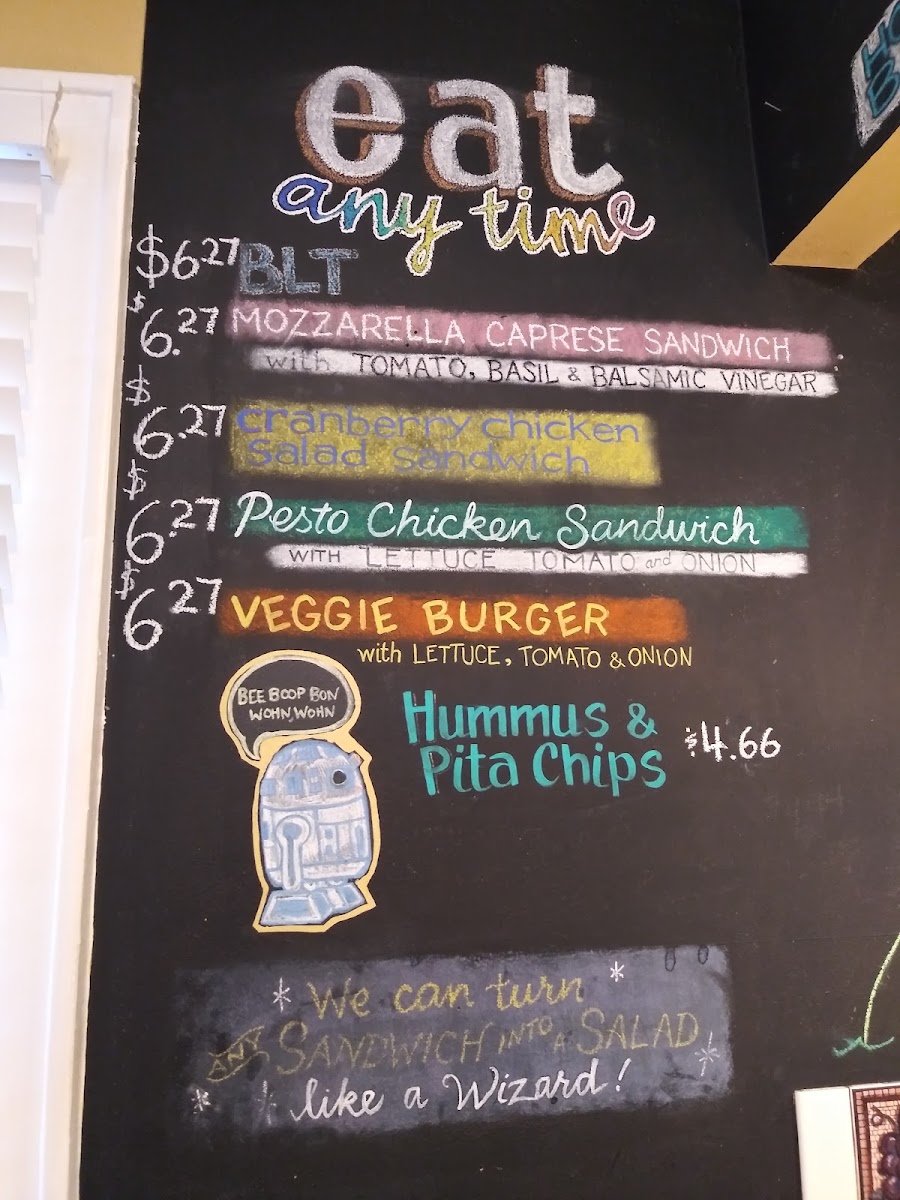 eat
any time
$6.27 BLT
$6.27 MOZZARELLA CAPRESE SANDWICH
with TOMATO, BASIL & BALSAMIC VINEGAR
$6.27 cranberry chicken
salad sandwich
$6.27 Pesto Chicken Sandwich
WITH LETTUCE TOMATO and ONION
$6.27 VEGGIE BURGER
with LETTUCE, TOMATO & ONION
BEE BOOP BON
WOHN, WOHN
Hummus &
Pita Chips $4.66
We can turn
ANY SANDWICH INTO A SALAD
like a Wizard!